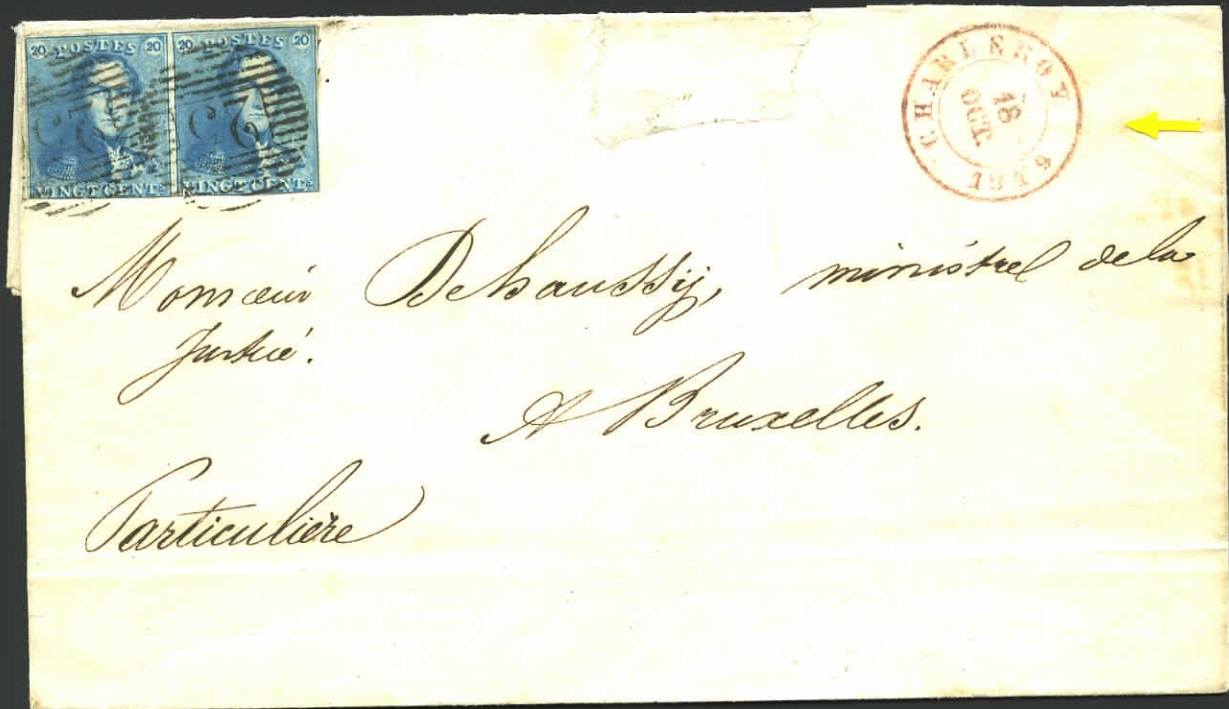 20 POSTES 20 20 POSTES 20
25 25
VINGT CENTS VINGT CENTS
CHARLEROY
18
OCT.
1849
Monsieur Dehaussÿ, ministre de la
Justice.
A Bruxelles.
Particulière